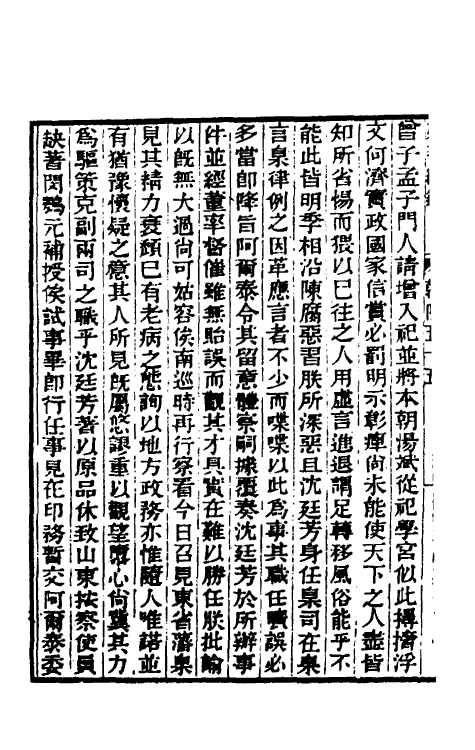 曾子孟子門人請增入祀並將本朝湯斌從祀學宮似此撏撦浮
文何濟實政國家信賞必罰明示彰癉尚未能使天下之人盡皆
知所省惕而猥以已往之人用虛言進退謂足轉移風俗能乎不
能此皆明季相沿陳腐惡習朕所深惡且沈廷芳身任臬司在臬
言臬律例之因革應言者不少而喋喋以此為事其職任曠誤必
多當即降旨阿爾泰令其留意體察嗣據覆奏沈廷芳於所辦事
件並經董率督催雖無貽誤而觀其才具實在難以勝任朕批諭
以旣無大過尚可姑容俟南巡時再行察看今日召見東省藩臬
見其精力衰頹已有老病之態詢以地方政務亦惟隨人唯諾並
有猶豫懷疑之意其人所見旣屬悠謬重以觀望墮心尚冀其力
為驅策克副兩司之職乎沈廷芳著以原品休致山東按察使員
缺著閔鶚元補授俟試事畢卽行任事見在印務暫交阿爾泰委